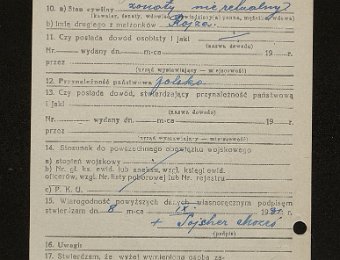 10. a) Stan cywilny żonaty nierytualny
(kawaler, żonaty, wdowiec
b) Imię drugiego z małżonków Rojza
11. Czy posiada dowód osobisty i jaki
(nazwa dowodu)
Nr. wydany dn. m-ca 19 r.
przez
(urząd wystawiający — miejscowość)
12. Przynależność państwowa polska
13. Czy posiada dowód, stwierdzający przynależność państwową
i jaki
(nazwa dowodu)
Nr. wydany dn. m-ca 19 r.
przez
(urząd wystawiający — miejscowość)
14. Stosunek do powszechnego obowiązku wojskowego
a) stopień wojskowy
b) Nr. gł. ks. ewid. lub
oficerów, wzgl. Nr. listy poborowej lub Nr. rejestru
c) P. K. U.
15. Wiarogodność powyższych danych własnoręcznym podpisem
stwierdzam dn. 8 m-ca IX 193 r.
(podpis)
16. Uwagi:
17. Stwierdzam, że wyżej wymieniona osoba za-